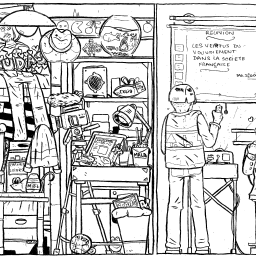 RÉUNION
LES VERTUS DU
VOUVOIEMENT
DANS LA SOCIÉTÉ
FRANÇAISE